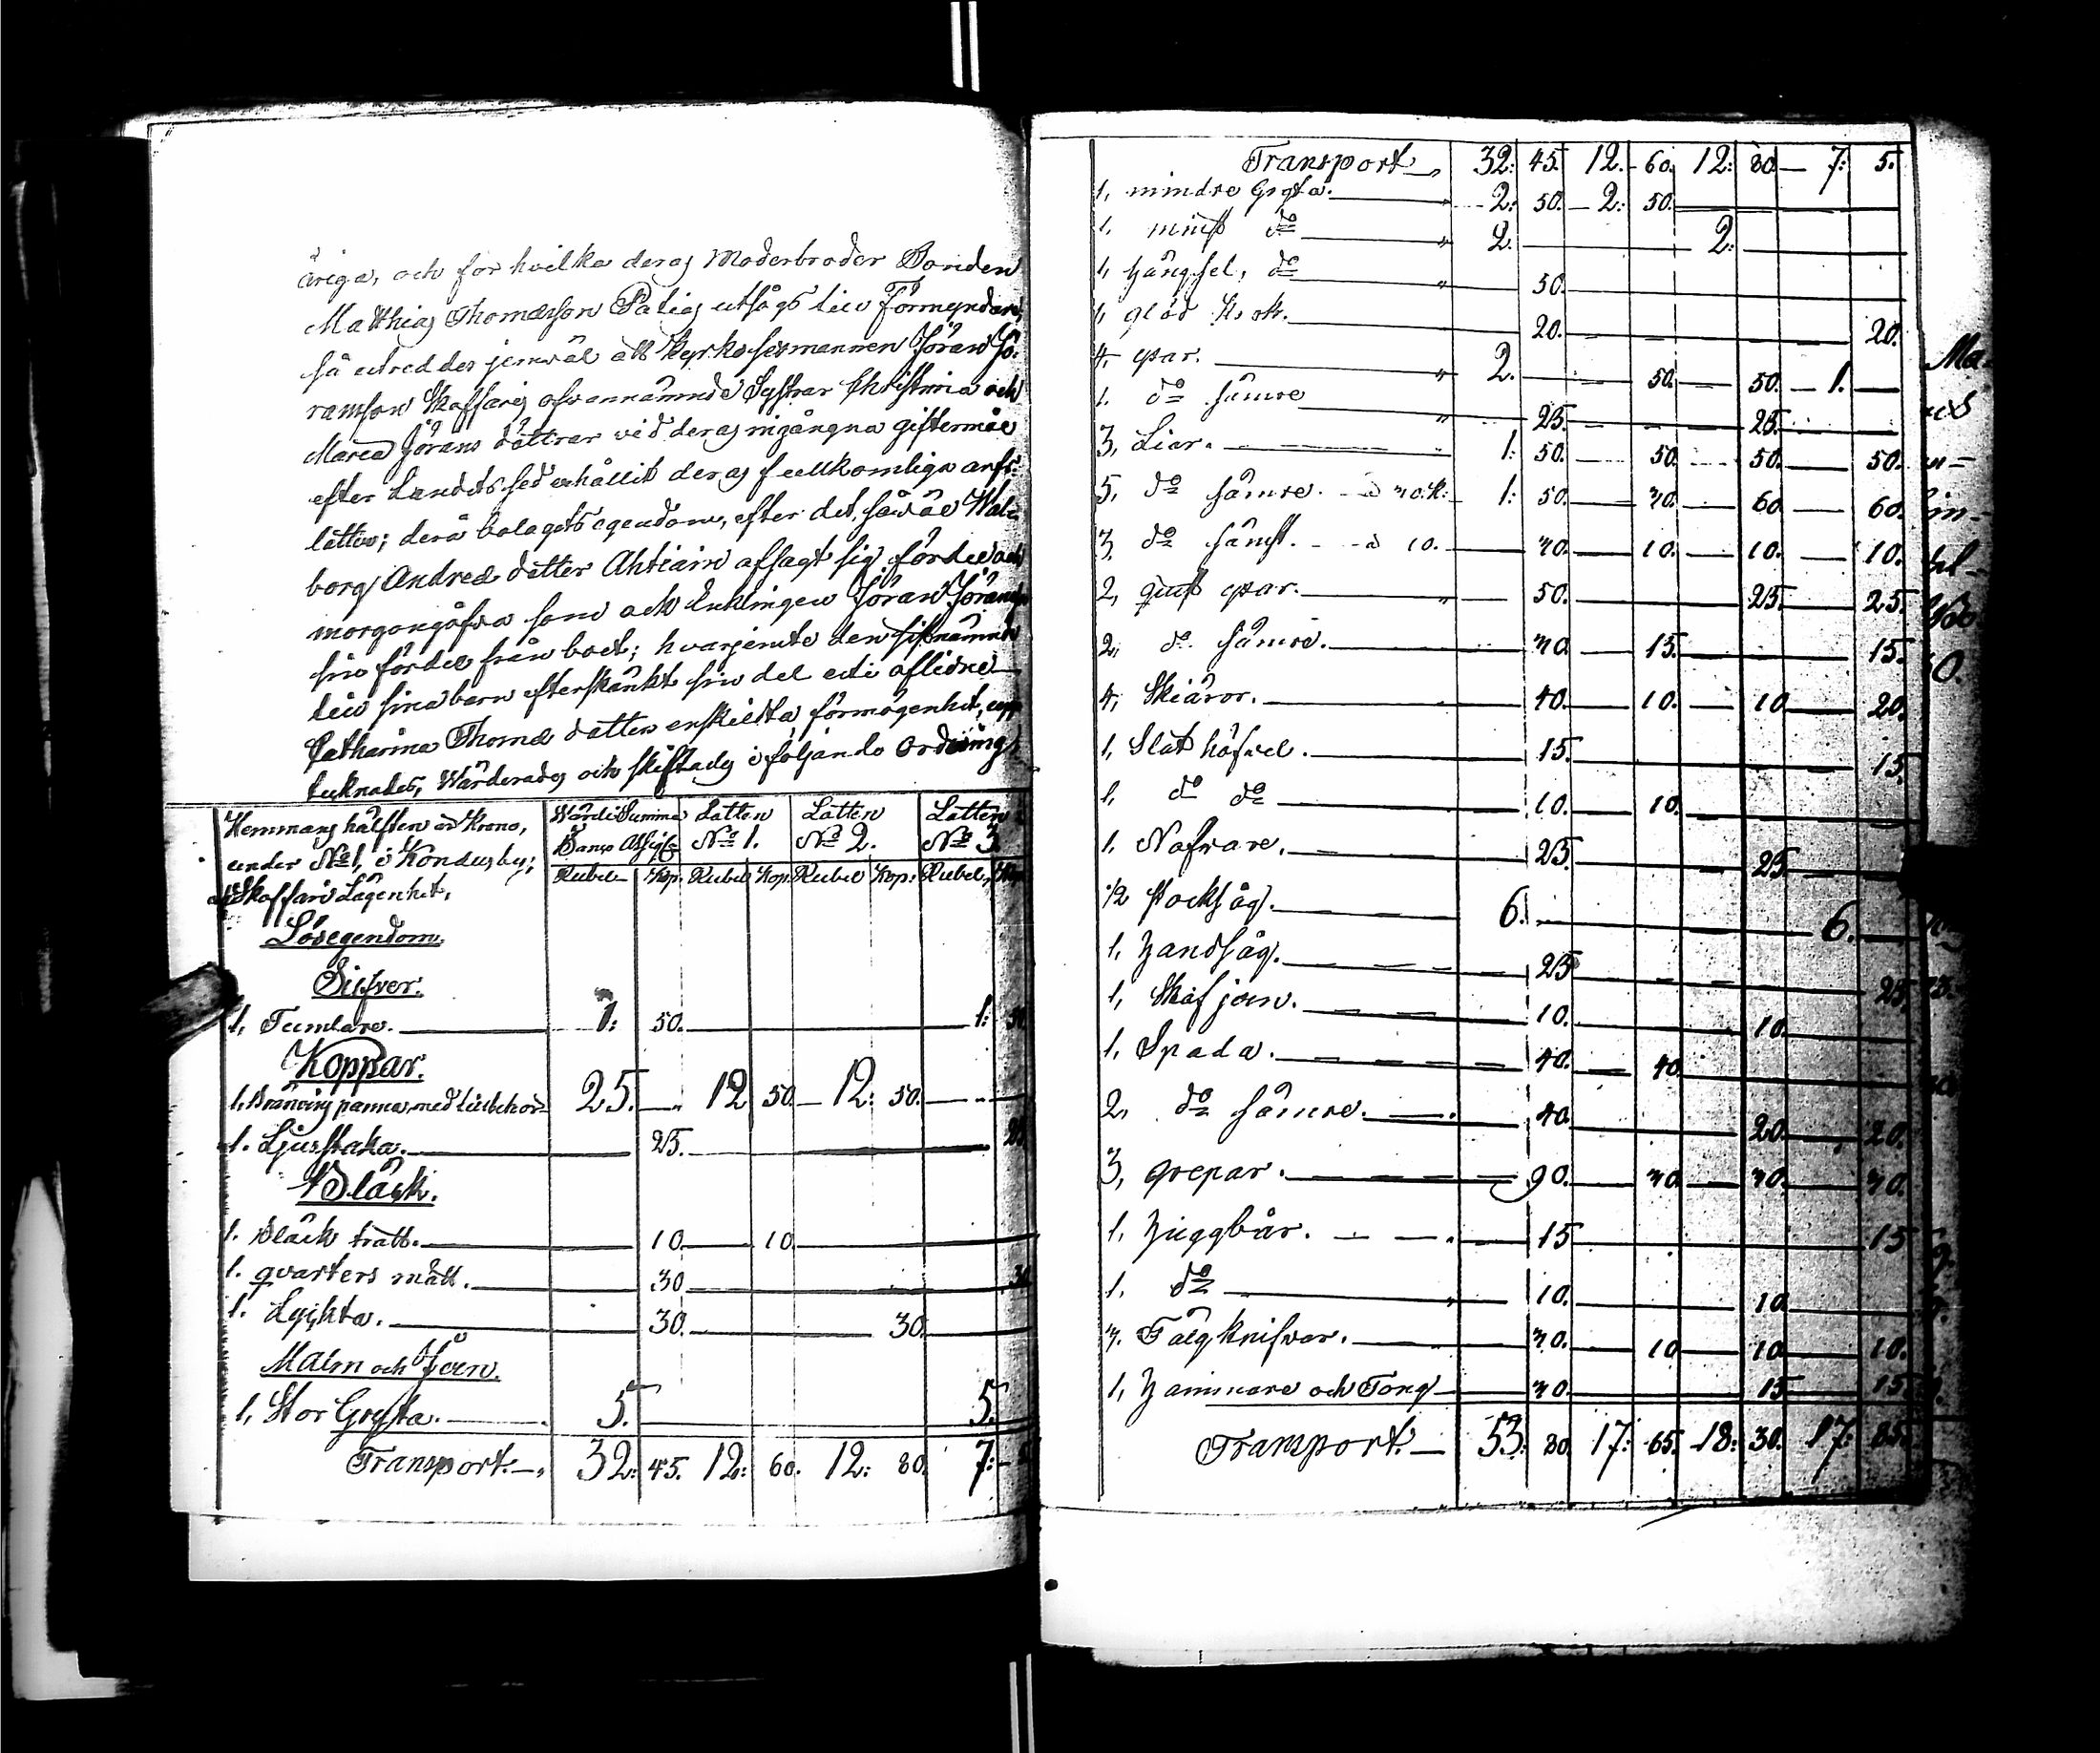 åriga, och för hvilka deras Moderbroder Bonden
Matthias Thomasson Patias utsågs till Förmyndare,
så utreddes jemväl att Kyrko sexmannen Jöran Jö-
ransson Skaffaris ofvannämnde Systrar Christina och
Maria Jörans döttrar vid deras ingångna giftermål
efter Landets sed erhållit deras fullkomliga arfs-
lotter; derå bolagets egendom, efter det, såväl Wal-
borg Andreæ dotter Ahtiain afsagt sig fördel och
morgongåfva som ock Enklingen Jöran Jöransson
sin fördel från boet; hvarjemte den sistnämnde
till sina barn efterskänkt sin del uti aflidne
Catharina Thomæ dotters enskilta förmögenhet, upp-
tecknades, Wärderades och skiftades i följande Ordning
Hemmans hälften af Krono, Wärdi Summa Lotten Lotten Lotten
under No 1, i Kondus by; Banco Assign No 1. No 2. No 3.
Skaffari Lägenhet, Rubel Kop. Rubel Kop. Rubel Kop: Rubel
Lösegendom.
Silfver.
1, Tumlare. 1: 50. 1: 50
Koppar.
1, Bränvins panna, med tillbehör 25. 12 50. 12: 50.
1. Ljusstaka. 25. 25
Bläck.
1. Bläck tratt. 10 10
1. qvarters mått. 30 30
1. Lyckta. 30. 30.
Malm och Jern.
1, Stor Gryta. 5. 5.
Transport. 32: 45. 12: 60. 12: 80. 7: 5
Transport 32: 45. 12. 60. 12: 80. 7: 5.
1, mindre Gryta. 2: 50. 2: 50.
1. minst do 2. 2.
1, hängsel, do 50.
1, glöd krok. 20. 20.
4 yxar. 2. 50. 50. 1.
1. do sämre 25. 25.
3, Liar. 1: 50. 50. 50. 50.
5, do sämre. à 30.k. 1: 50. 30. 60 60.
3, do sämst. à 10. 30. 10. 10. 10.
2, yxar. 50. 25. 25.
2, do. sämre. 30. 15. 15.
4, Skiäror. 40. 10. 10 20.
1, Slät höfvel. 15. 15
1, do do 10. 10.
1. Nafvare. 25. 25.
1/2 stocksåg. 6. 6.
1, Handsåg. 25 25
1, Skaf jern. 10. 10.
1, Spada. 40. 40
2, do sämre. 40. 20. 20.
3, grepar. 90. 30. 30. 30.
1, Huggbår. 15 15
1. do 10. 10
3. Tälg knifvar. 30. 10 10 10.
1, Hammare och Tong 30. 15 15
Transport. 53: 80. 17: 65. 18: 30. 17: 85.